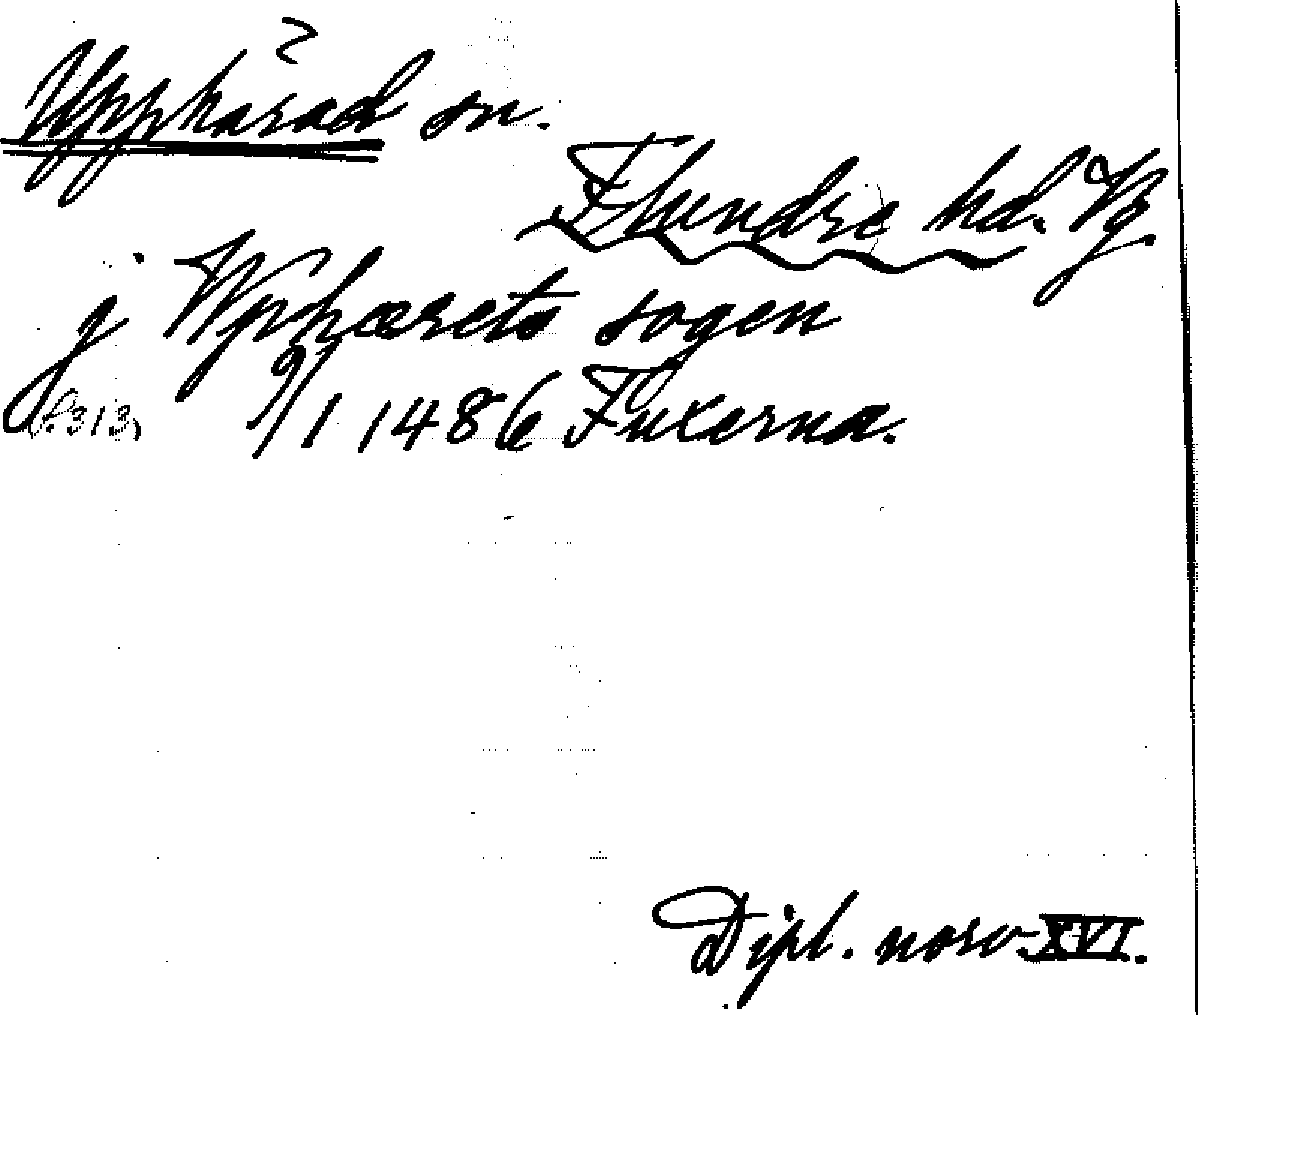 Upphärad sn.
Flundre hd. Vg
j Wphærets sogen
(s. 313) 9/1 1486 Fuxerna.
Dipl. norv XVI.